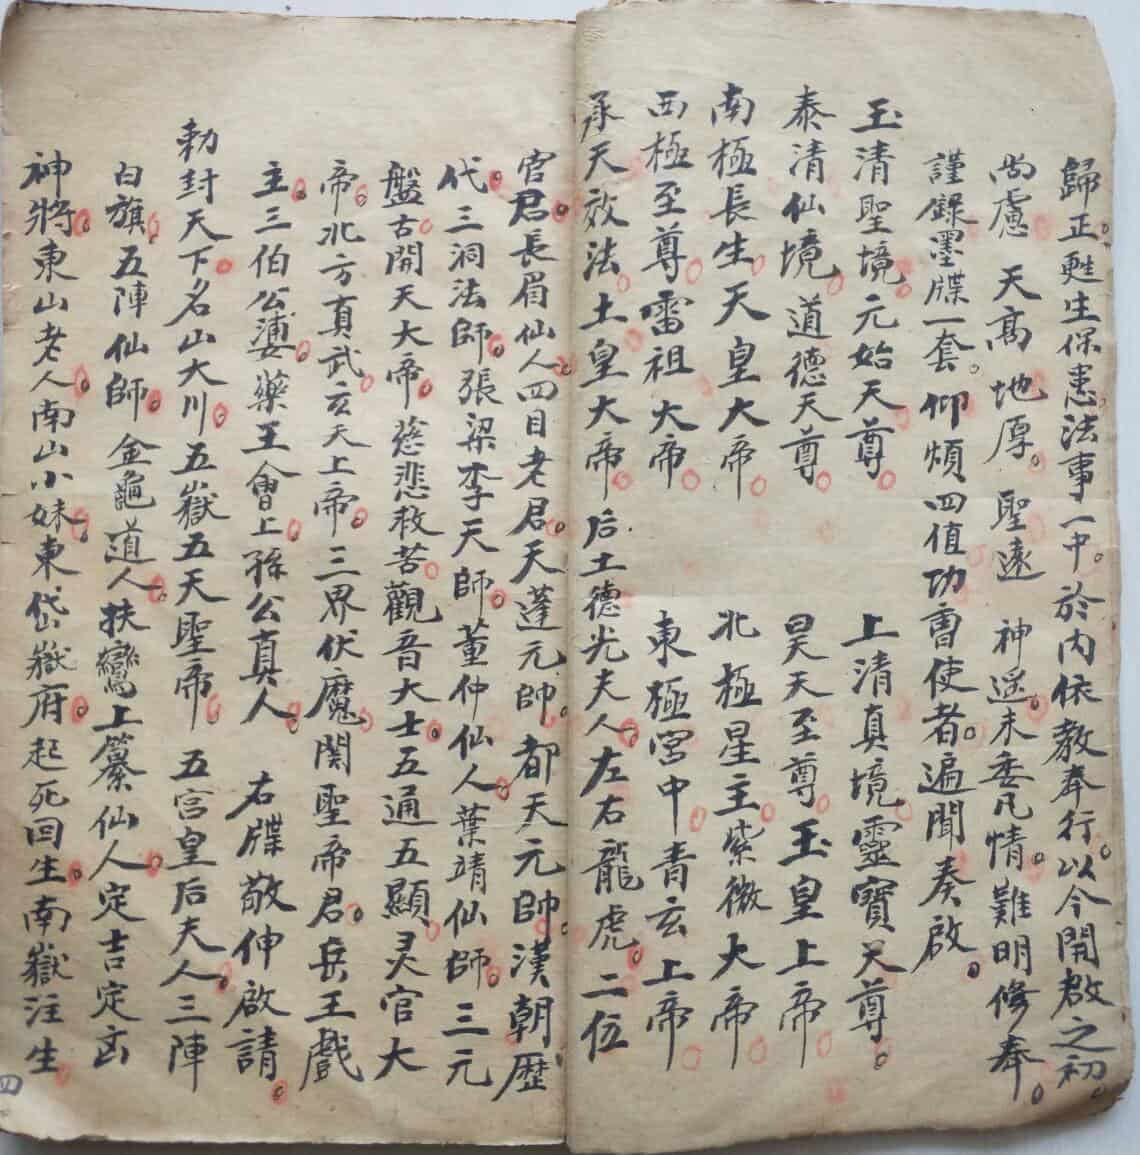 歸正甦生保患法事一中。於內依教奉行。以今開啟之初。
尚慮　天高地厚。聖遠　神遥。未委凡情。難明修奉。
謹錄墨牒一套。仰煩四值功曹使者。遍聞奏啟。
玉清聖境。元始天尊。　上清真境。靈寶天尊。
泰清仙境。道德天尊。　昊天至尊。玉皇上帝。
南極長生天皇大帝。　北極星主紫微大帝。
西極至尊。雷祖大帝。　東極宮中青玄上帝。
承天效法。土皇大帝。后土德光夫人。左右龍虎。二位
官君。長眉仙人。四目老君。天蓬元帥。都天元帥。漢朝歷
代。三洞法師。張梁李天師。董仲仙人。葉靖仙師。三元
盤古。開天大帝。慈悲救苦。觀音大士。五通五顯。灵官大
帝。北方真武。玄天上帝。三界伏魔。関聖帝君。岳王戲
主。三伯公婆。藥王會上。孫公真人。　右牒敬伸啟請。
勅封天下。名山大川。五嶽五天聖帝。　五宮皇后夫人。三陣
白旗。五陣仙師。金龜道人。扶鸞上纂仙人。定吉定凶
神將。東山老人。南山小妹。東岱嶽府。起死回生。南嶽注生。
四